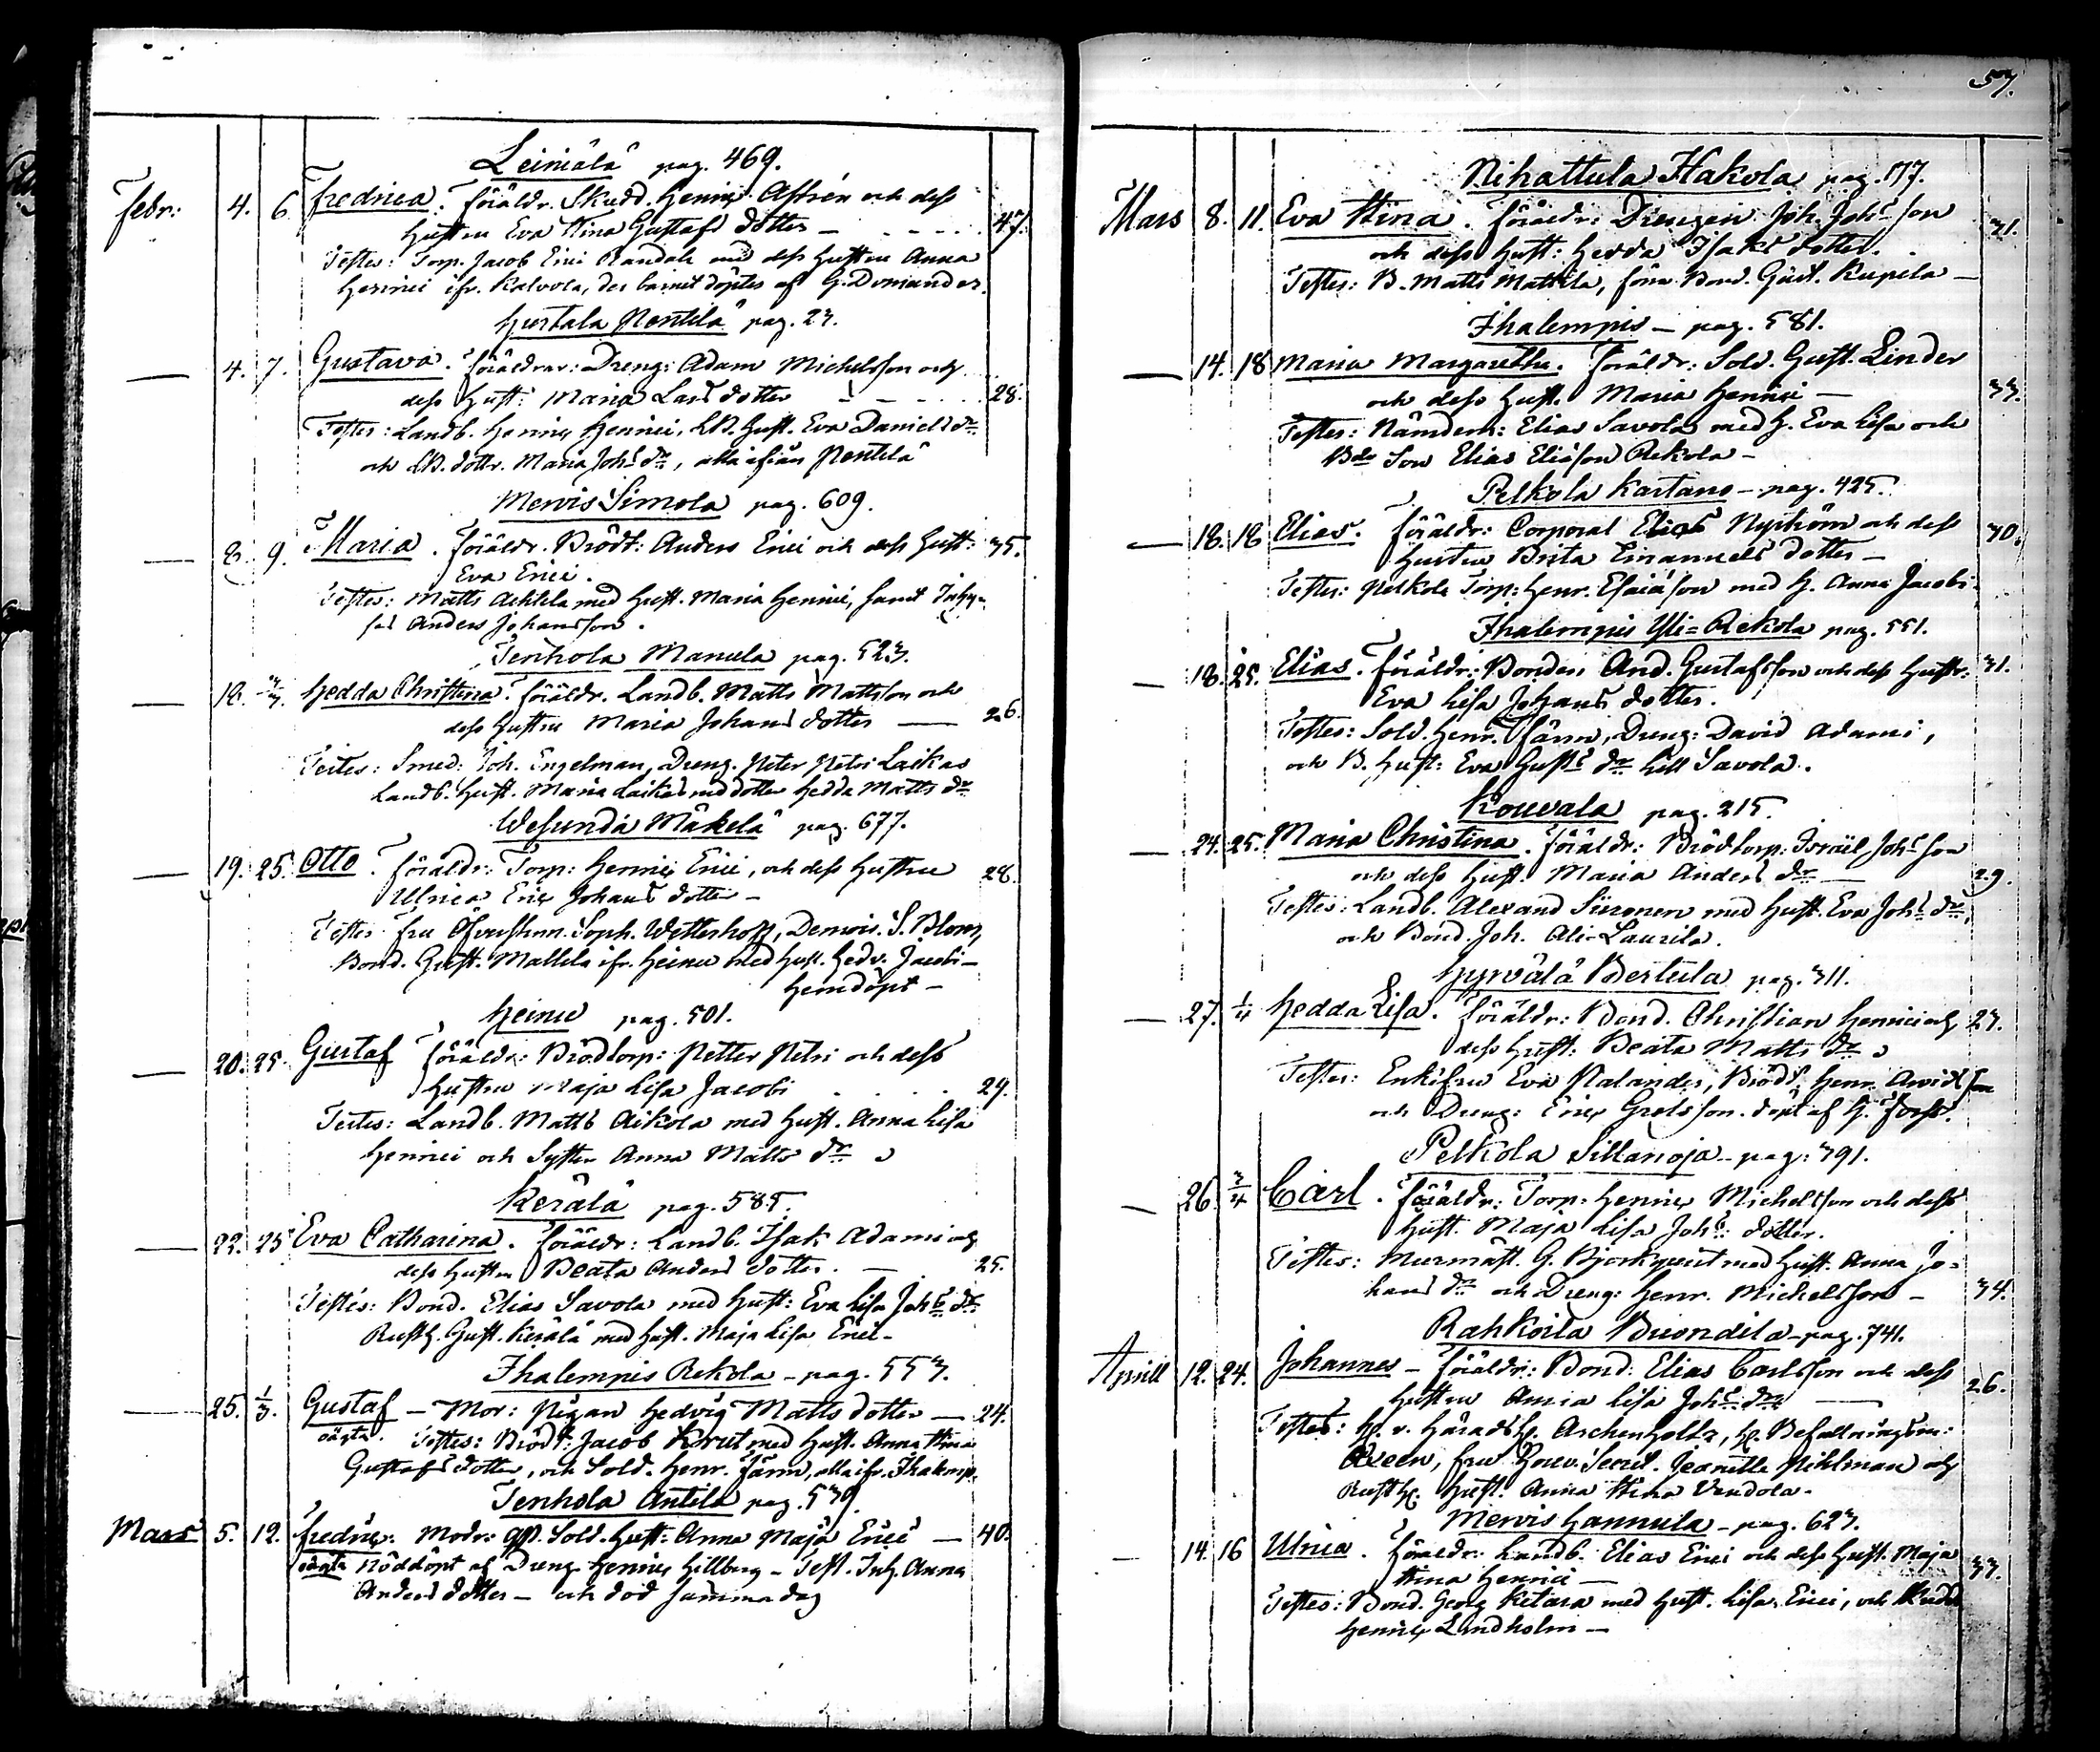 Leiniälä pag. 469.
Febr: 4. 6. Fredrica. Föräldr. Skredd. Henric Astrén och dess
hustru Eva Stina Gustafsdotter — 47.
Testes: Torp. Jacob Erici Randala med dess hustru Anna
Henrici ifr. Kalvola, der barnet döptes af G. Domander.
Hurtala Pentilä pag. 23.
— 4. 7. Gustava. Föräldrar: Dreng: Adam Michelsson och
dess hust: Maria Larsdotter — 28.
Testes: Landb. Henric Henrici, LB. hust. Eva Daniels dr.
och LB. dottr. Maria Johs dr, alla ifrån Pentilä
Mervis Simola pag. 609.
— 8. 9. Maria. Föräldr. Brödt: Anders Erici och dess hust: 35.
Eva Erici.
Testes: Matts Achtela med hust. Maria Henrici, samt Inhy-
ses Anders Johansson.
Tenhola Manula pag. 523.
— 18. 3/3. Hedda Christina. Föräldr. Landb. Matts Mattsson och
dess hustru Maria Johansdotter — 26.
Testes: Smed: Joh. Engelman, Dreng. Peter Petri Laikas
Landb. hust. Maria Laikas med dotter Hedda Matts dr
Wesunda Mäkelä pag. 677.
— 19. 25. Otto. Föräldr: Torp: Henric Erici, och dess hustru 28.
Ulrica Eric Johansdotter —
Testes fru Öfversthm. Soph. Wetterhoff, Demois. S. Blom,
Bond. Gust. Mattila ifr. Heinu med hust. Hedv. Jacobi —
hemdöpt —
Heinu pag. 501.
— 20. 25. Gustaf Föräldr: Brödtorp: Petter Petri och dess
hustru Maja Lisa Jacobi 29.
Testes: Landb. Matts Aikola med hust. Anna Lisa
Henrici och Syster Anna Matts dr
Kerälä pag. 585.
— 22. 25 Eva Catharina. Föräldr: Landb. Isak Adami och
dess hustru Beata Andersdotter. — 25.
Testes: Bond. Elias Savola med hust: Eva Lisa Johs dr
Rusth. Gust. Kerälä med hust. Maja Lisa Erici —
Ihalempis Rekola — pag. 553.
— 25. 1/3. Gustaf — Mor: Pigan Hedvig Mattsdotter — 24.
oäkta. Testes: Brödt: Jacob Korut med hust. Anna Stina
Gustafsdotter, och Sold. Henr. Järn, alla ifr. Ihalemp.
Tenhola Antila pag. 539.
Mars 5. 12. Fredric. Modr: Sold. hust: Anna Maja Erici — 40.
oäkta Nöddöpt af Dreng Henric Hillberg — Test. Inh. Anna
Andersdotter — och död samma dag
57.
Nihattula Hakola pag. 117.
Mars 8. 11. Eva Stina. Föräldr: Drengen Joh. Johsson 31.
och dess hust: Hedda Isaksdotter.
Testes: B. Matts Mattila, förra Bond. Gust. Kupila —
Ihalempis — pag. 581.
— 14. 18 Maria Margaretha. Föräldr: Sold. Gust. Linder
och dess hust. Maria Henrici — 33.
Testes: Nämdem: Elias Savola med h. Eva Lisa och
Bde Son Elias Eliasson Rekola —
Pelkola Kartano — pag. 425.
— 18. 18 Elias. Föräldr: Corporal Elias Nyström och dess 30.
hustru Brita Emanuelsdotter —
Testes: Pelkola Torp: Henr. Esaiasson med h. Anna Jacobi
Ihalempis Yli=Rekola pag. 551.
— 18. 25. Elias. Föräldr: Bonden And. Gustafsson och dess hustr: 31.
Eva Lisa Johansdotter.
Testes: Sold. Henr. Järn, Dreng: David Adami,
och B. hust: Eva Gusts dr till Savola.
Kouvala pag. 215.
— 24. 25. Maria Christina. Föräldr: Brödtorp: Israël Johsson
och dess hust. Maria Anders dr — 29.
Testes: Landb. Alexand Siironen med hust. Eva Johs dr,
och Bond. Joh. Ali-Laurila.
Hyrvälä Bertula pag. 311.
— 27. 1/4 Hedda Lisa. Föräldr: Bond. Christian Henrici och 23.
dess hust: Beata Matts dr
Testes: Enkefru Eva Nalander, Brödt. Henr. Avidsson
och Dreng: Eric Grelsson. döpt af H. Forss.
Pelkola Sillanoja — pag: 391.
— 26. 3/4 Carl. Föräldr: Torp: Henric Michelsson och dess
hust. Maja Lisa Johs: dotter.
Testes: Murmäst. G. Björkqvist med hust. Anna Jo=
hans dr och Dreng: Henr. Michelsson — 34.
Rahkoila Buondila — pag. 741.
Aprill 12. 24. Johannes — Föräldr: Bond: Elias Carlsson och dess 26.
hustru Anna Lisa Johs dr —
Testes: H. v. Häradsh. Archenholtz, H. Befallningsm:
Aréen, fru Prov. Secret. Jeanette Pihlman och
Rusth. hust. Anna Stina Vendola —
Mervis Hannula — pag. 623.
— 14. 16 Ulrica. Föräldr: Landb. Elias Erici och dess hust. Maja 33.
Stina Henrici —
Testes: Bond. Georg Ketara med hust. Lisa Erici, och
Henric Lindholm —